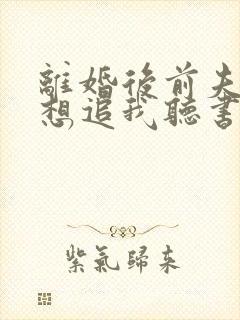 離婚後前夫
想追我聽書
紫氣歸來